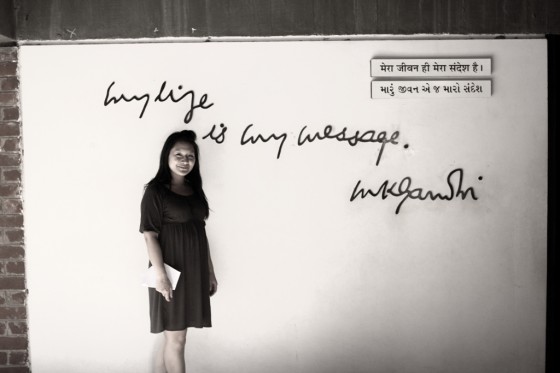 my life
is my message.
mkgandhi
मेरा जीवन ही मेरा संदेश है।
મારું જીવન એ જ મારો સંદેશ